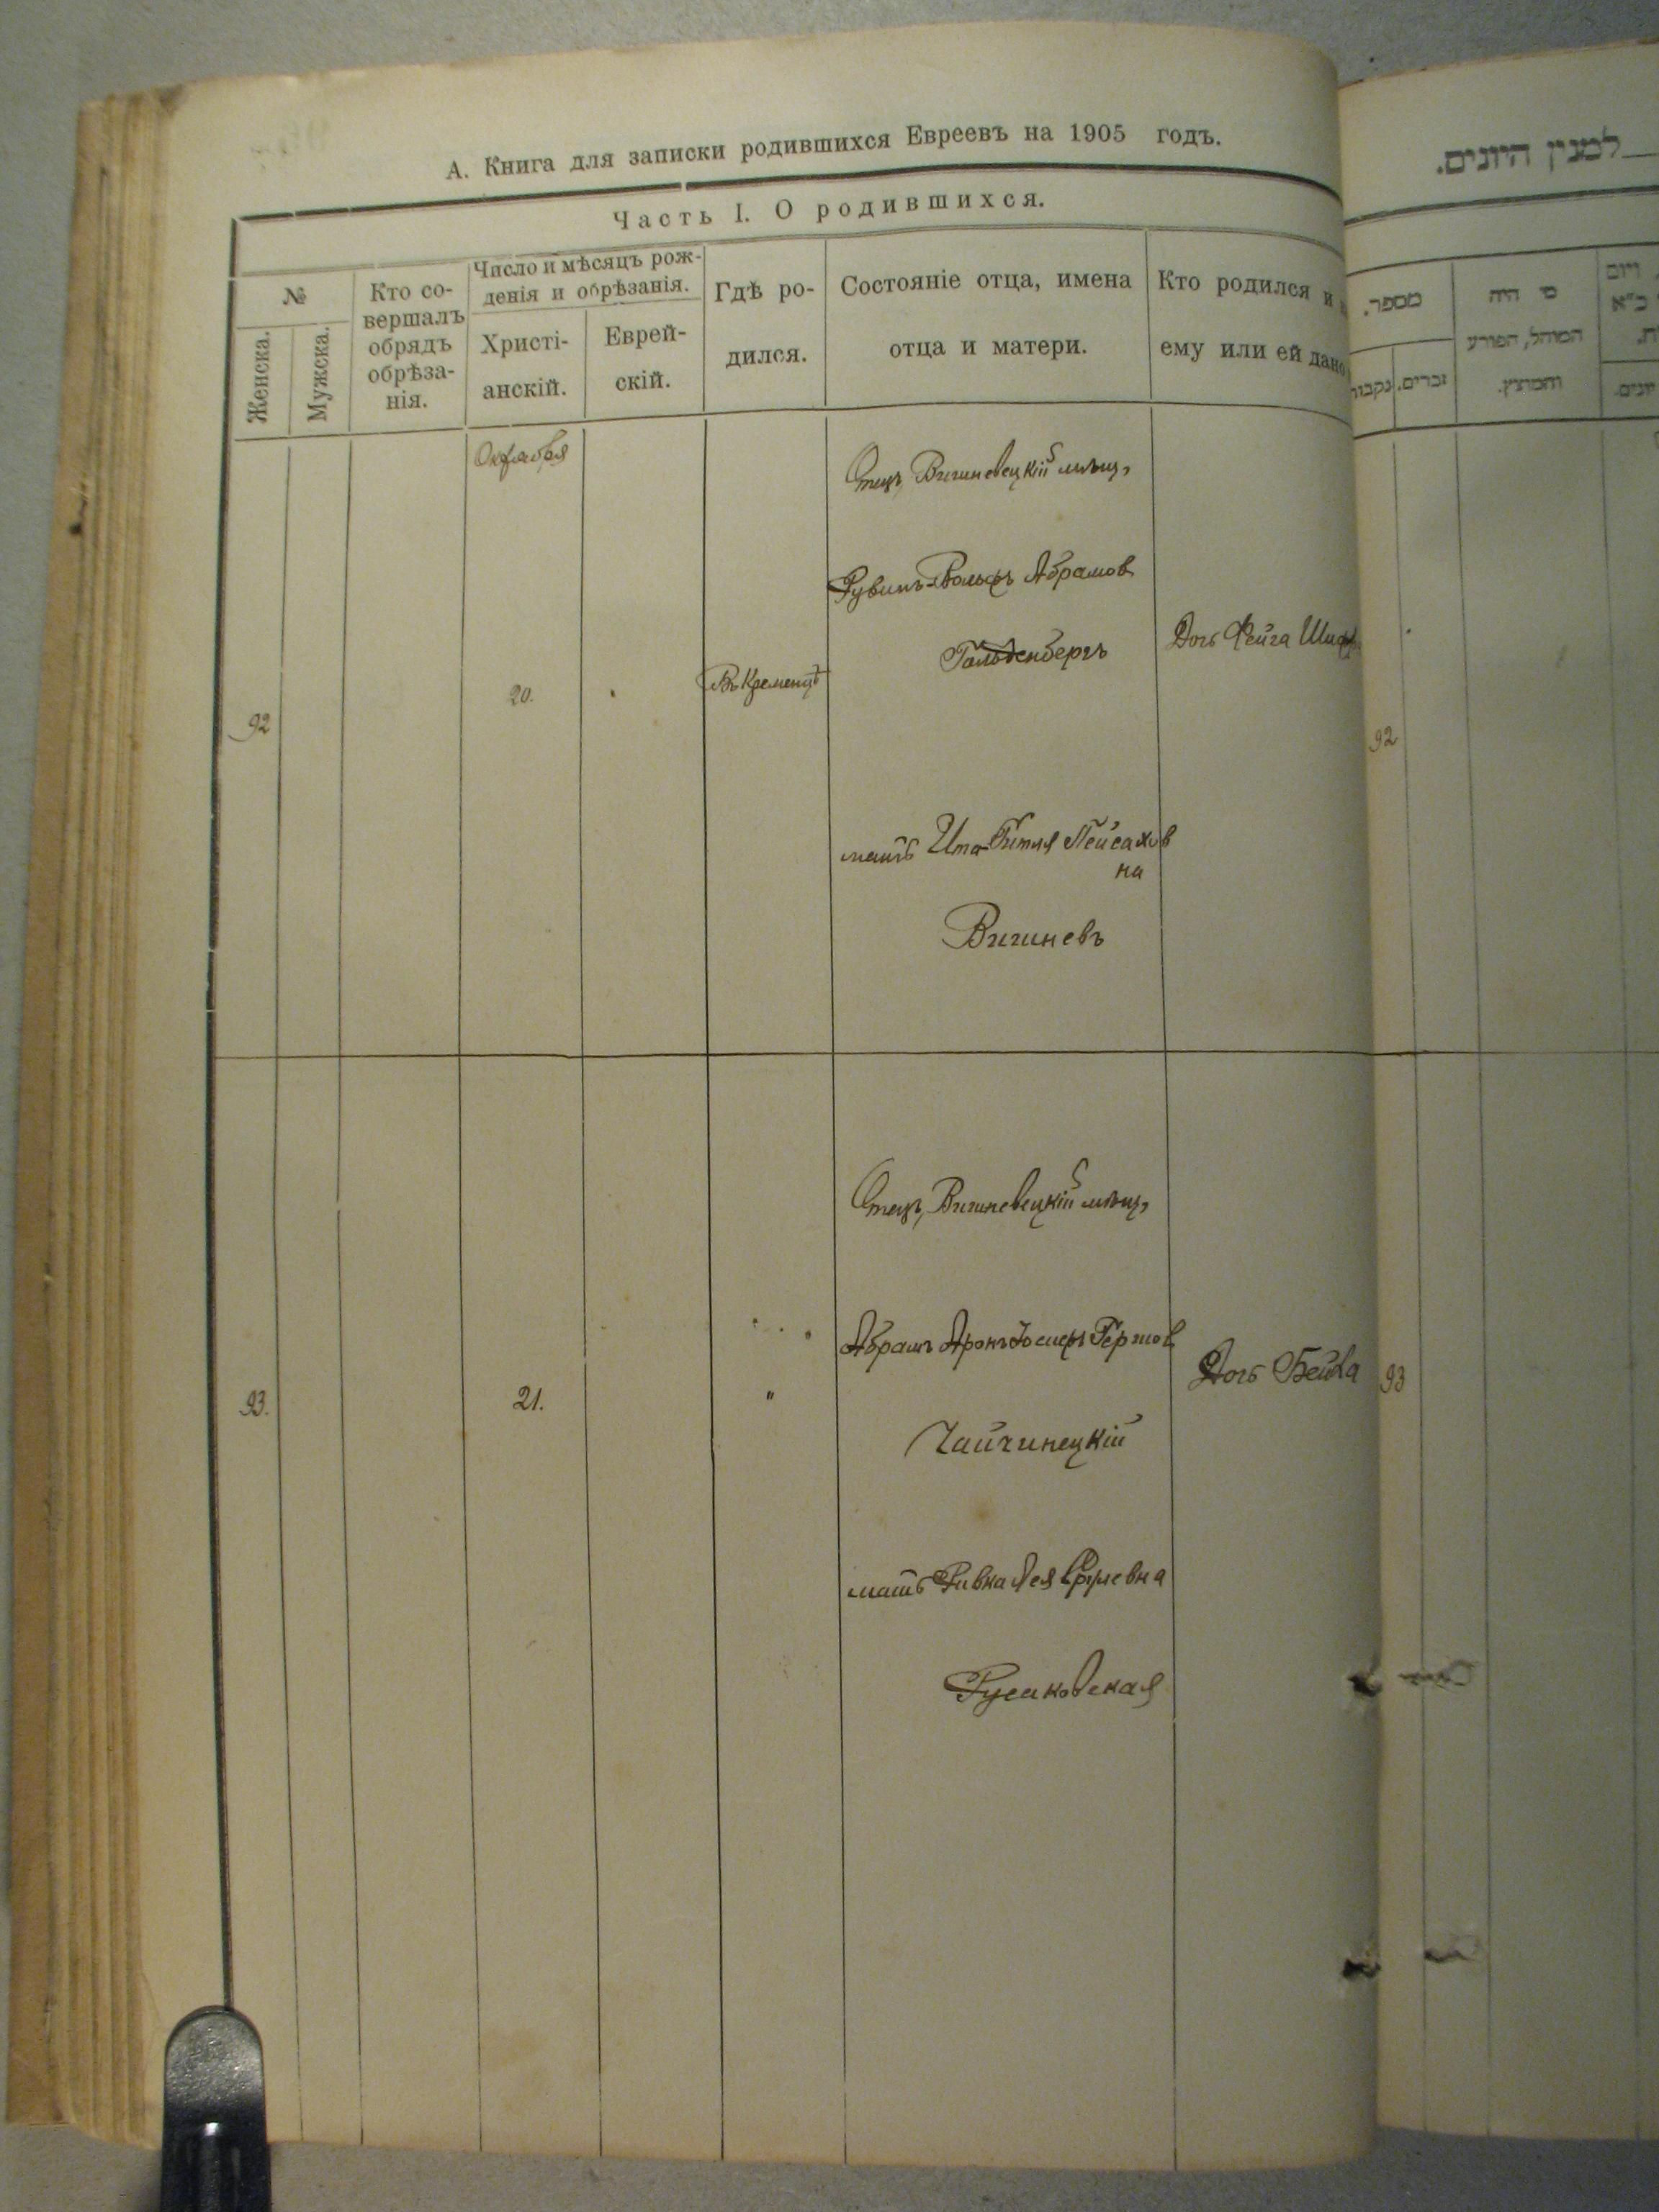 А. Книга для записки родившихся Евреевъ на 1905 годъ.
Часть I. О родившихся.
№
Женска.
Мужска.
Кто со-
вершалъ
обрядъ
обрѣза-
нія.
Число и мѣсяцъ рож-
денія и обрѣзанія.
Христі-
анскій.
Еврей-
скій.
Гдѣ ро-
дился.
Состояніе отца, имена
отца и матери.
Кто родился и
ему или ей дано
92
Октября
20.
Въ Кременцѣ
Отецъ, Вишневецкій мѣщ,
Рувинъ-Вольфъ Абрамов
Гольденбергъ
мать Ита-Гитля Пейсахов
на
Вишневъ
Дочь Фейга
93.
21.
"
Отецъ, Вишневецкій мѣщ,
Абрамъ Аронъ Іосифъ
Чайчинецкій
мать Ривка Лея
Русаковская
Дочь Бейла
למנין היונים.
מספר.
זכרים.
מי היה
המוהל, הפורע
והמוצץ.
92
93